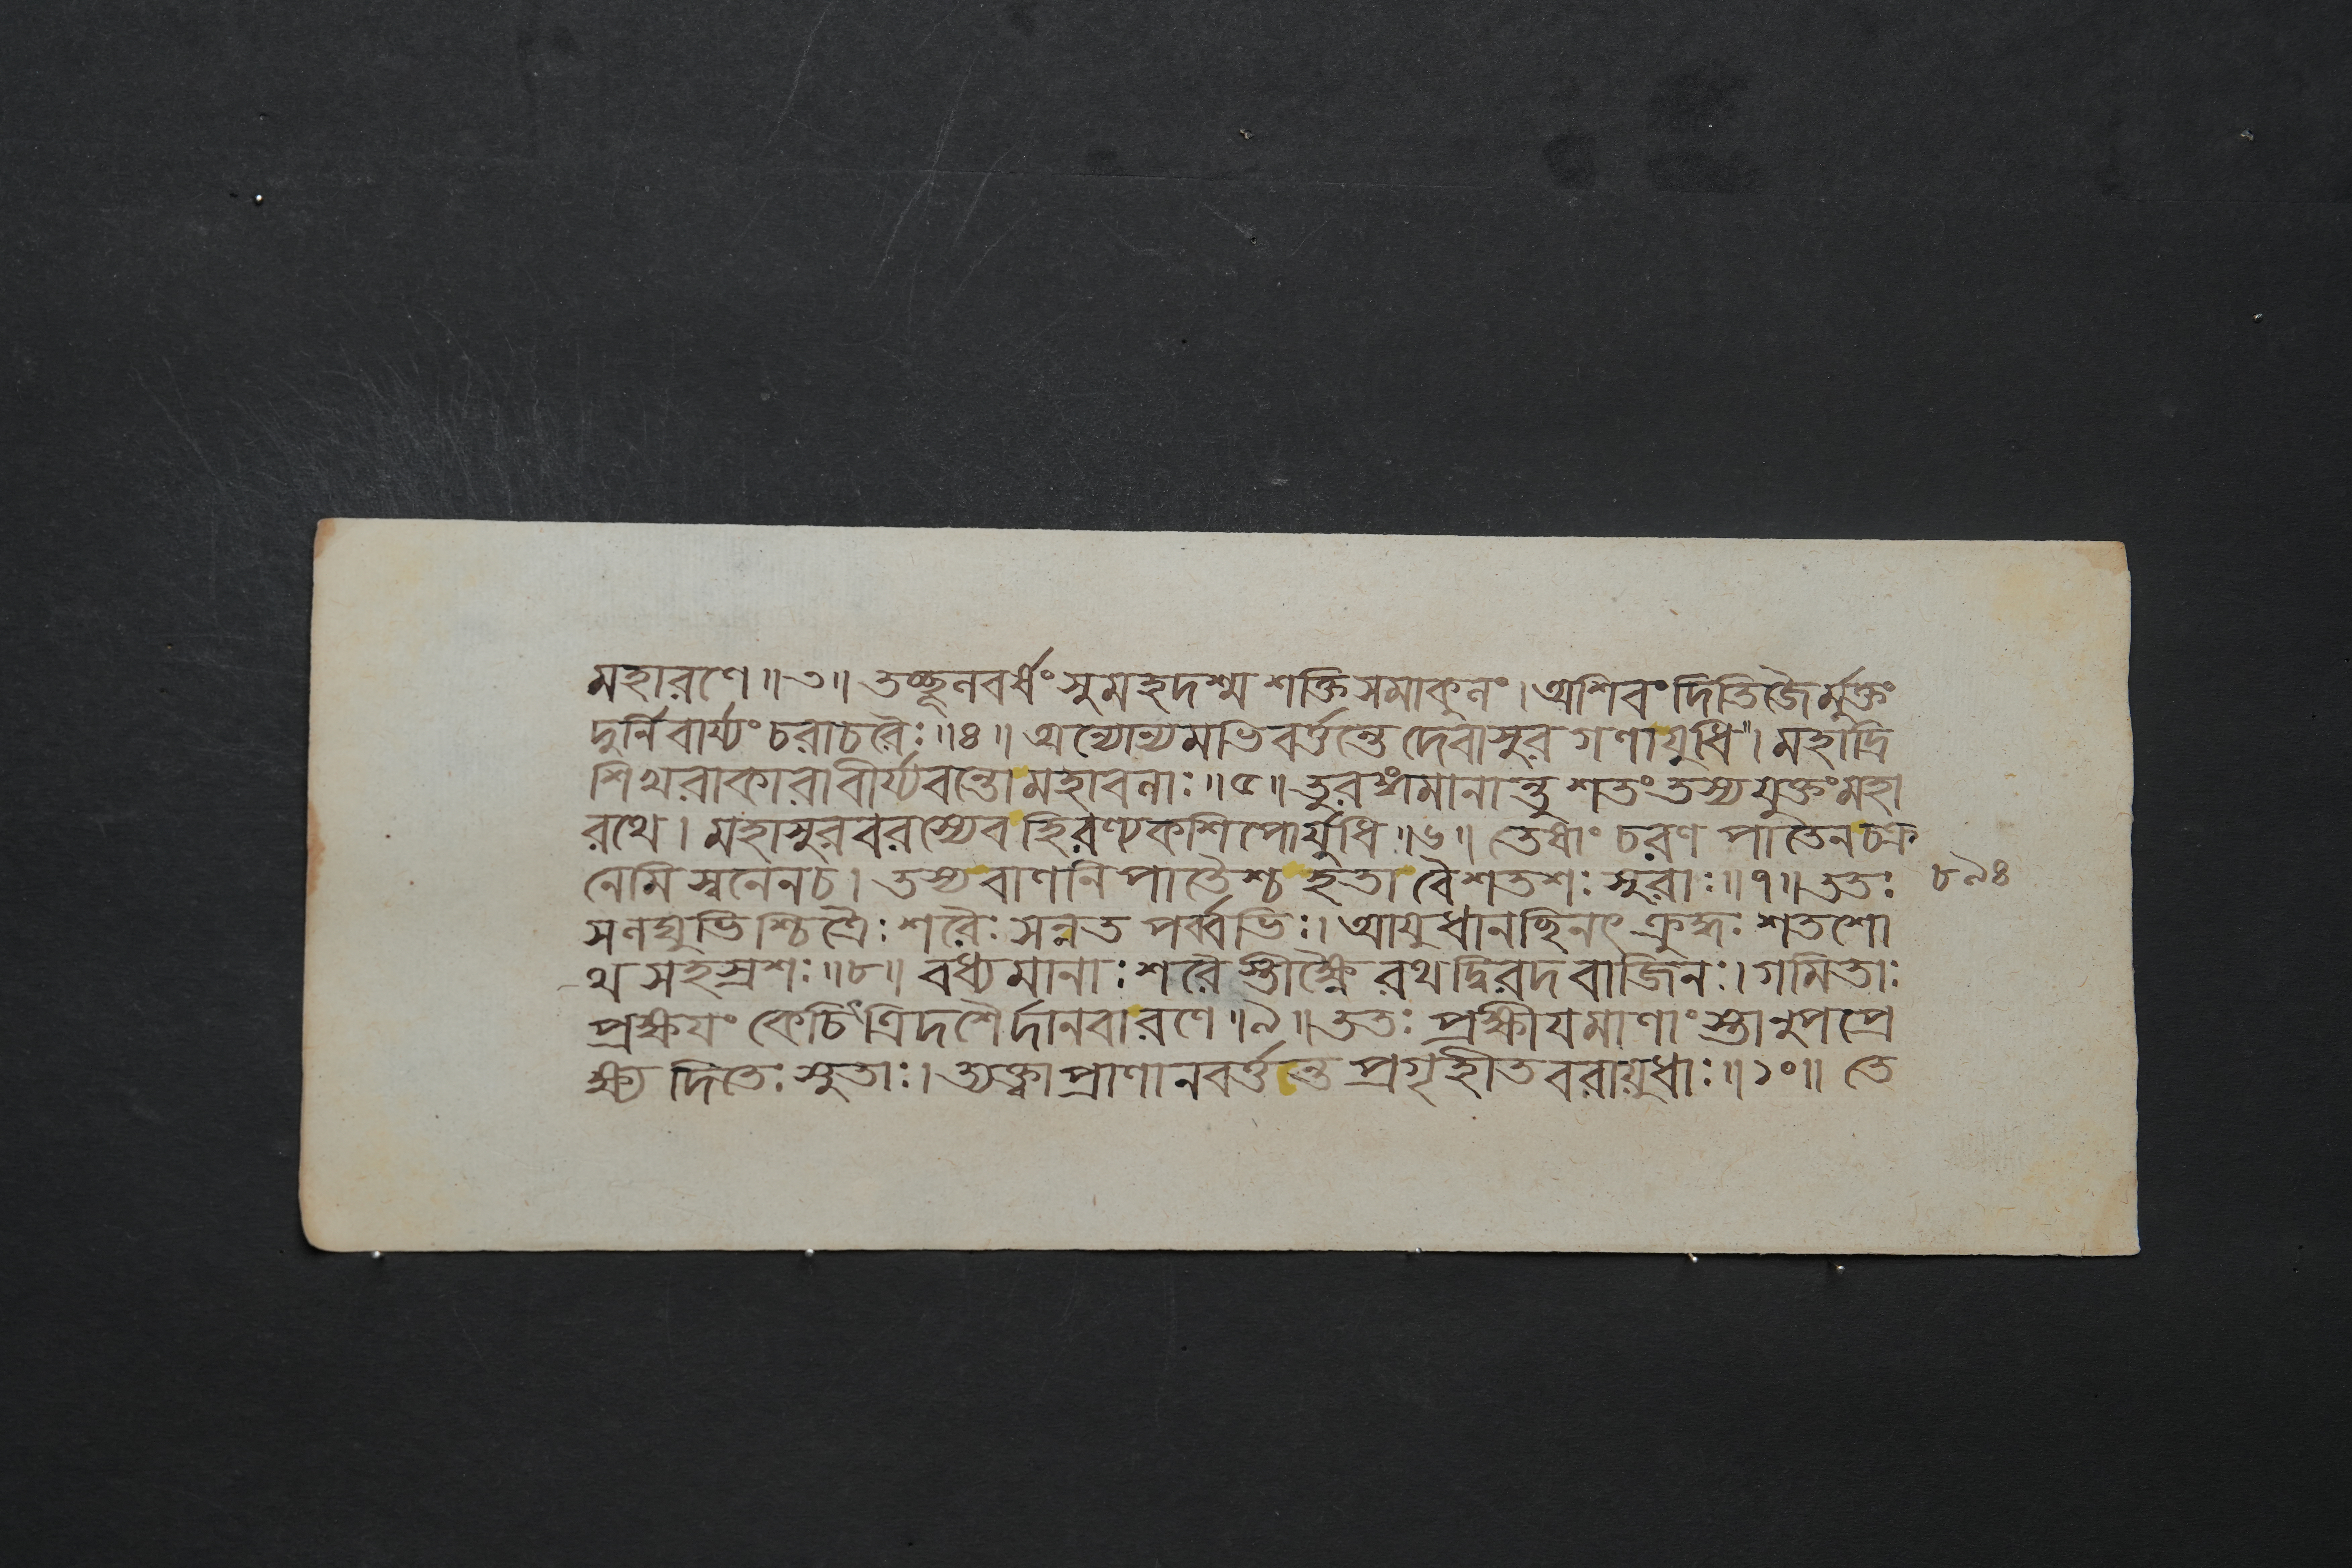 মহারণে॥৩॥তচ্ছূলবর্ষং সুমহদশ্ম শক্তিসমাকুলং।অশিবং দিতিজৈর্মুক্তং
দুর্নিবার্য্যং চরাচরৈঃ॥৪॥অন্যোন্যমভিবর্ত্তন্তে দেবাসুর গণাযুধি"।মহাদ্রি
শিখরাকারাবীর্য্যবন্তোমহাবলাঃ॥৫॥তুরঙ্গমানান্তু শতং তস্য যুক্তং মহা
রথে।মহাসুরবরস্যেব হিরণ্যকশিপোর্যুধি॥৬॥তেষাং চরণ পাতৈনচক্র
নেমি স্বনেনচ।তস্য বাণনি পাতৈশ্চ হতা বৈশতশঃ সুরাঃ॥৭॥ততঃ
সলঘুভিশ্চিত্রৈঃ শরৈঃ সন্নত পর্ব্বভিঃ।আযুধানচ্ছিনৎ ক্রুদ্ধঃ শতশো
থ সহস্রশঃ॥৮॥বধ্যমানাঃ শরৈস্তীক্ষ্ণৈ রথদ্বিরদ বাজিনঃ।গমিতাঃ
প্রক্ষযং কেচিৎত্রিদশৈর্দানবারণে॥৯॥ততঃ প্রক্ষীযমাণাংস্তানুপপ্রে
ক্ষ্য দিতেঃ সুতাঃ।ত্যক্ত্বাপ্রাণানবর্ত্তন্তে প্রগৃহীতবরাযুধাঃ॥১০॥তে
৮৯৪